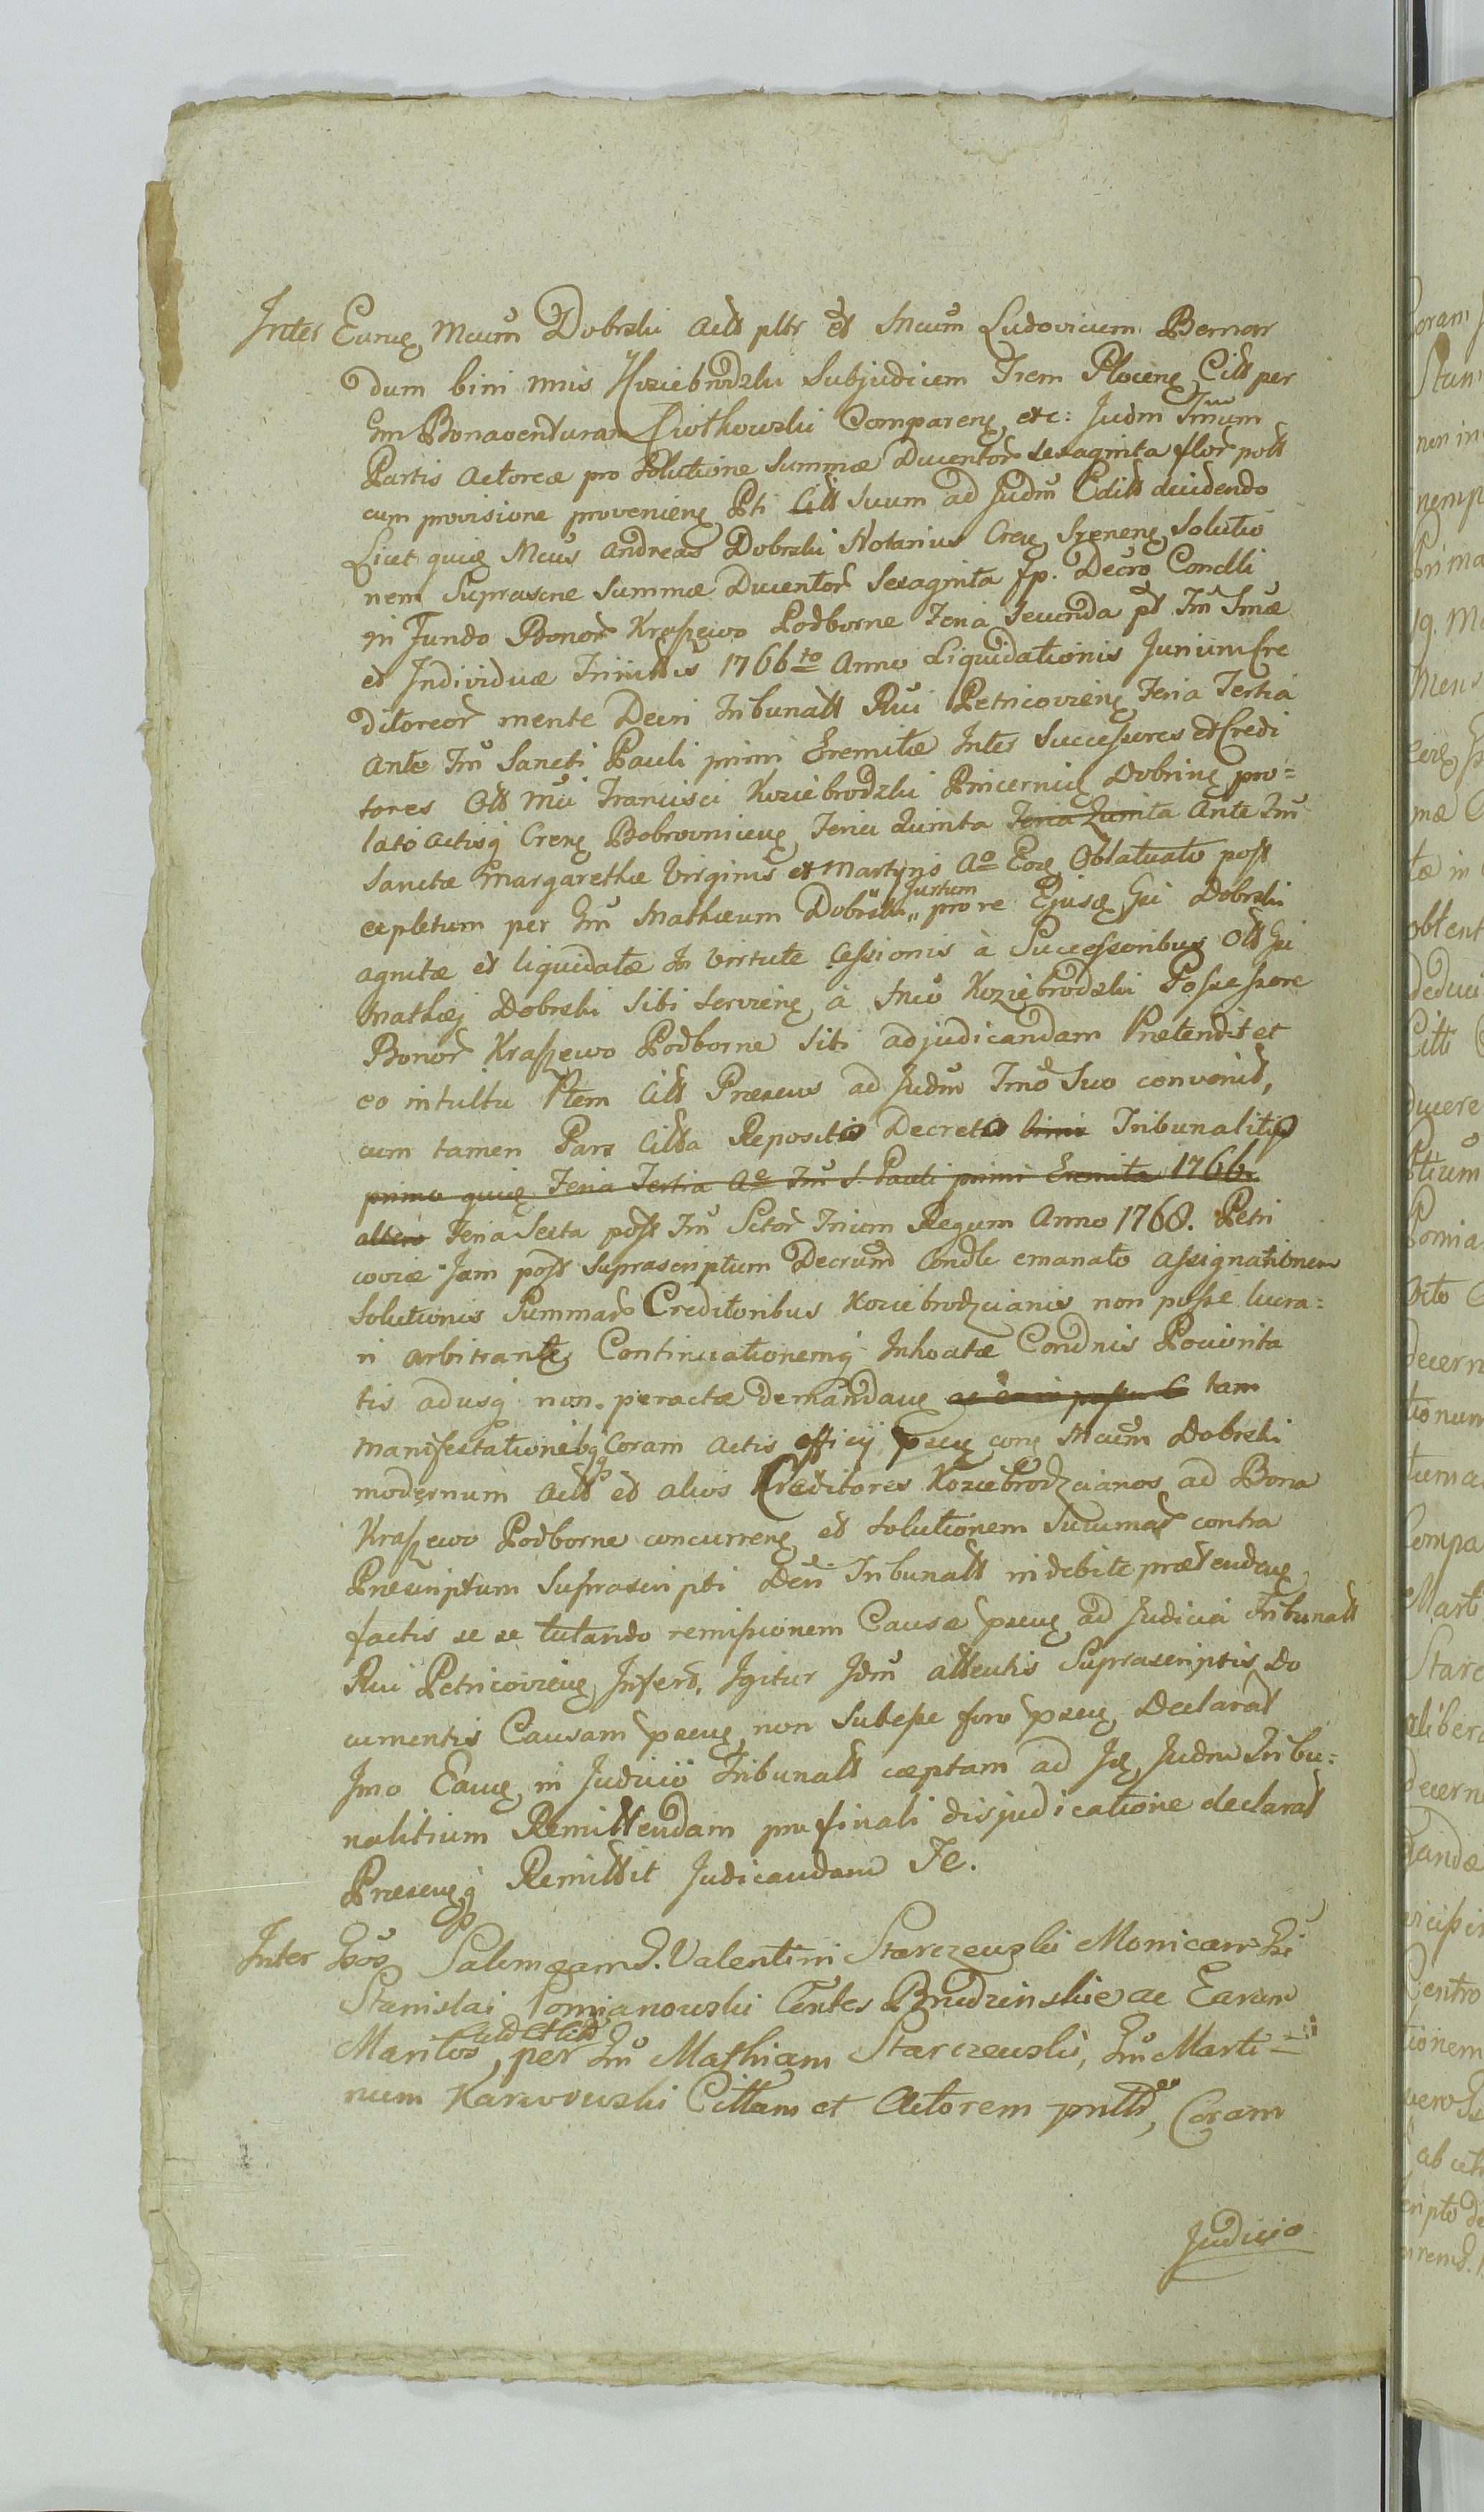 Inter Eunḡ Mcum Dobrski Actt pltr et Mcum Ludovicum Bernar
dum bini nnis Koziebrodzki Subjudicem Trem Plocenḡ Citt per
Gm Bonaventuram Ciotkowski Comparenḡ etc: Judm Tmum
Partis Actoreæ pro Solutione Summæ Ducentor Sexaginta flor poll
cum provisione provenienḡ Pti Citt Suum ad Judm Editt decidendo
Licet quiḡ Mcus Andreas Dobrski Notarius Crew Srenenḡ Solutio
nem Suprascne Summæ Ducentor Sexaginta fp. Decro Condlli
in Fundo Bonor Kraszewo Podborne Feria Secunda pt Fm Smæ
et Individuæ Trinittis 1766to Anno Liquidationis Junium Cre
ditoreor mente Decri Tribunall Rui Petricovienḡ Feria Tertia
Ante Fm Sancti Pauli primi Eremitæ Inter Successores et Credi
tores Olt Mci Francisci Koziebrodzki Pincerniḡ Dobrinḡ pro=
lato Actisq Crenḡ Bobrownicenḡ Feria Quinta Feria Quinta Ante Fm
Sanctæ Margarethæ Virginis et Martyris Ao Eoḡ Oblatuato post
expletum per Gm Mathæum Dobrski „ Jurtum pro re Ejusḡ Gi Dobrski
agnitæ et liquidatæ In Virtute Cessionis à Successoribus Olt Gi
Mathæj Dobrski Sibi Servienḡ à Mco Koziebrodzki Possessore
Bonor Kraszewo Podborne Sibi adjudicandam Prætendit et
eo intuitu Ptem Citt Præsens ad Judm Tmo Suo convenit,
cum tamen Pars Citta Reposito Decreto bini Tribunalitio
primo quiḡ Feria Tertia Ae Fm S. Pauli primi Eremitæ 1766.
altero Feria Sexta post Fm Sctor Trium Regum Anno 1768. Petri
coviæ Jam post Suprascriptum Decrum Condle emanato assignationem
Solutionis Summar Creditoribus Koziebrodzcianis non posse lucra=
ri arbitrante Continuationemq Inhoatæ Condnis Pociorita
tis adusq non peractæ demandanḡ tam
manifestationibq Coram Actis officij pscnḡ conḡ Mcum Dobrski
modernum Actt ed alios Creditores Koziebrodzcianos ad Bona
Kraszewo Podborne concurrenḡ et Solutionem Summar contra
Præscriptum Suprascripti Decri Tribunall indebite prætendenḡ
factis se se tutando remissionem Causæ pscnḡ ad Judicia Tribunall
Rui Petricovienḡ Infert, Igitur Jdm attentis Suprascriptis Do
cumentis Causam pscnḡ non Subesse foro pscnḡ Declarat
Imo Eanḡ in Judicio Tribunall cæptam ad Jḡ Judm Tribu=
nalitium Remittendam pro finali disjudicatione declarat
Præsenḡq Remittit Judicandam Te.
Inter Gsos Salomeam G. Valentini Starczewski Monicam Gi
Stanislai Pomianowski Centes Brudzinskie ac Earum
Maritos, per Gm Mathiam Starczewski, Gm Marti=
num Karwowski Cittam et Actorem pntthr, Coram
Judicio